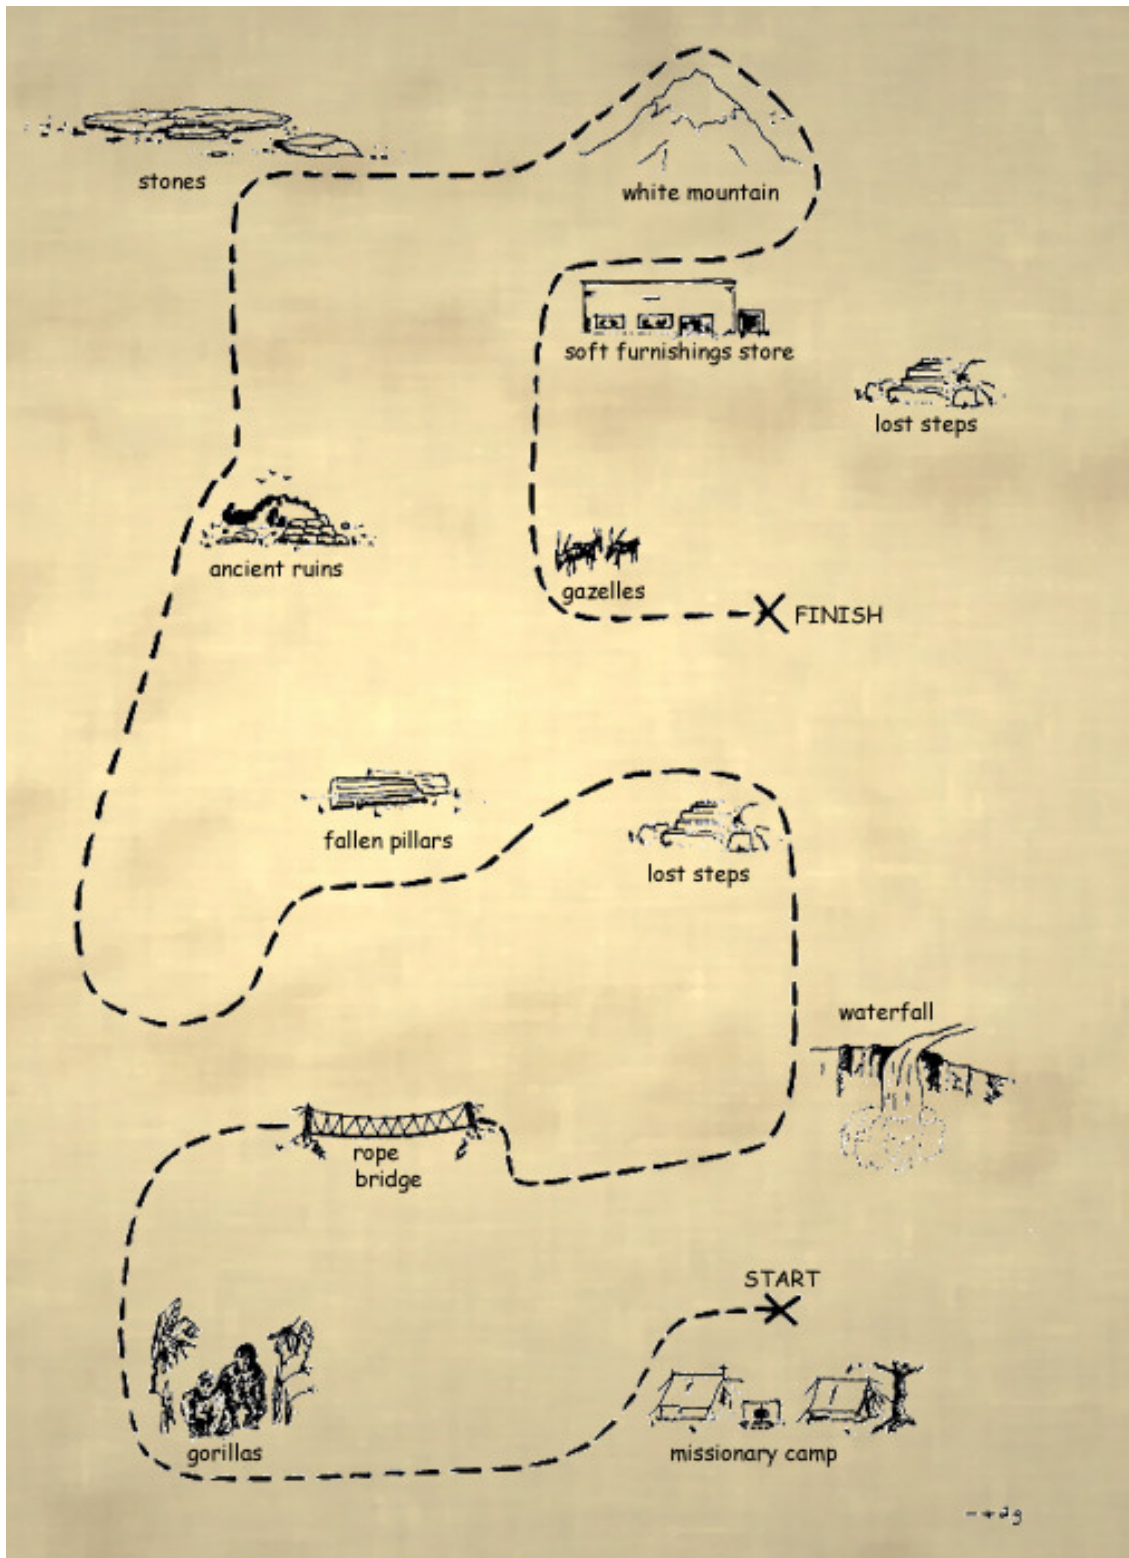 stones
white mountain
soft furnishings store
lost steps
ancient ruins
gazelles
FINISH
fallen pillars
lost steps
waterfall
rope
bridge
START
gorillas
missionary camp